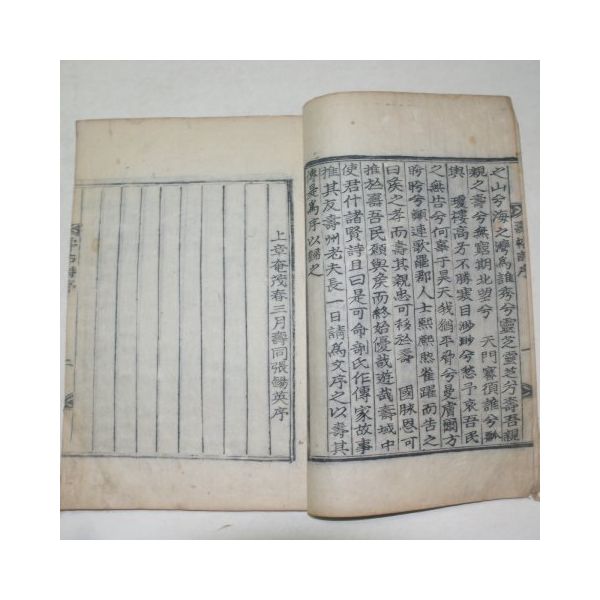 之山兮海之濟爲誰秀兮靈芝靈芝兮壽吾親
親之壽兮無窮期北望兮 天門賽須誰兮
輿 瓊樓高才不勝寒目渺渺兮愁予哀吾民
之無告兮何辜于昊天我猶平 兮曼膚爾方
肹肹兮顚連歌罷郡人士熙熙然雀躍而告之
曰侯之孝而壽其親忠可移於壽 國脉恩可
推於壽吾民願與侯而終始優哉遊哉壽域中
使君什諸賢詩且曰是可命剞氏作傳家故事
推其友壽州老夫長一日請爲文序之以壽其
傳是爲序以歸之
上章奄茂春三月壽同張錫英序